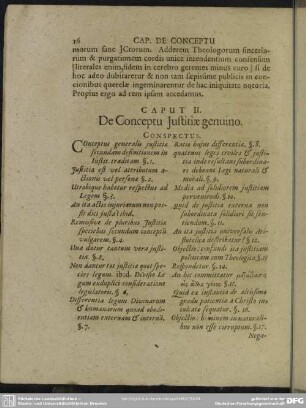 16 CAP. DE CONCEPTU
morum sane JCtorum. Adderem Theologorum sinceriorum
& purgationem cordis unice intendentium consensum
[literales enim, fidem in cerebro gerentes minus curo] si de
hoc adeo dubitaretur & non tam sæpissime publicis in concionibus
querelæ ingeminarentur de hac iniquitate notoria,
Propius ergo ad rem ipsam accedamus.
CAPUT II.
De Conceptu Justitiæ genuino.
CONSPECTUS.
COnceptus generalis justitiæ
secundum definitionem in
Instit. traditam §. 1.
Justitia est vel attributum actionis
vel personæ §. 2.
Utrobique habetur respectus ad
Legem §. 3.
An ita actus injustorum non possit
dici justus ibid.
Remissive de pluribus Justitiæ
speciebus secundum conceptus
vulgarem. §. 4.
Una datur tantum vera justitia.
§. 5.
Non dantur tot justitiæ quot species
legum. ibid. Divisio Legum
exduplici consideratione
legislatoris. §. 6.
Differentia legum Divinarum
& humanarum quoad obedientiam
externam & internam.
§. 7.
Ratio hujus differentiæ. §. 8.
quatenus leges civiles & justitia
inde resultans subordinari
debeant Legi naturali &
morali. §. 9.
Media ad solidiorem justitiam
perveniendi. §. 10.
quid de justitia externa non
subordinata solidiori sit sentiendum.
§. 11.
An ita justitia universalis Aristotelica
destruatur §. 12.
Objectio: confundi ita justitiam
politicam cum Theologica. §. 13
Respondetur §. 14.
An hic committatur
§. 15.
Quid ex instantia de altissimo
gradu patientiæ a Christo inculcatæ
sequatur. §. 16.
Objectio: hominem in naturalibus
non esse corruptum. §. 17.
Nega-